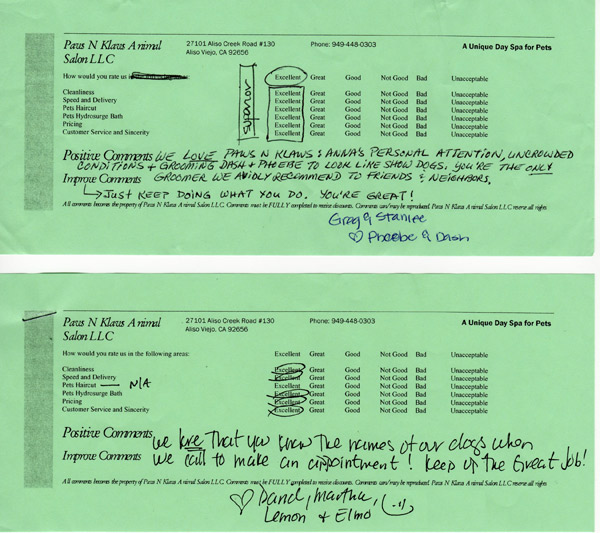 Paws N Klaws Animal Salon LLC
27101 Aliso Creek Road #130
Aliso Viejo, CA 92656
Phone: 949-448-0303
A Unique Day Spa for Pets
How would you rate us in
Excellent Great Good Not Good Bad Unacceptable
Cleanliness Excellent Great Good Not Good Bad Unacceptable
Speed and Delivery Excellent Great Good Not Good Bad Unacceptable
Pets Haircut Excellent Great Good Not Good Bad Unacceptable
Pets Hydrosurge Bath Excellent Great Good Not Good Bad Unacceptable
Pricing Excellent Great Good Not Good Bad Unacceptable
Customer Service and Sincerity Excellent Great Good Not Good Bad Unacceptable
Positive Comments WE LOVE PAWS N KLAWS & ANNA'S PERSONAL ATTENTION, UNCROWDED
CONDITIONS + GROOMING DASH + PHOEBE TO LOOK LIKE SHOW DOGS. YOU'RE THE ONLY
Improve Comments GROOMER WE AVIDLY RECOMMEND TO FRIENDS & NEIGHBORS.
JUST KEEP DOING WHAT YOU DO. YOU'RE GREAT!
All comments becomes the property of Paws N Klaws Animal Salon LLC. Comments must be FULLY completed to receive discounts. Comments can/may be reproduced. Paws N Klaws Animal Salon LLC reserve all rights
Greg & Stanlee
♡ Phoebe & Dash
Paws N Klaws Animal Salon LLC
27101 Aliso Creek Road #130
Aliso Viejo, CA 92656
Phone: 949-448-0303
A Unique Day Spa for Pets
How would you rate us in the following areas:
Excellent Great Good Not Good Bad Unacceptable
Cleanliness Excellent Great Good Not Good Bad Unacceptable
Speed and Delivery Excellent Great Good Not Good Bad Unacceptable
Pets Haircut — N/A Excellent Great Good Not Good Bad Unacceptable
Pets Hydrosurge Bath Excellent Great Good Not Good Bad Unacceptable
Pricing Excellent Great Good Not Good Bad Unacceptable
Customer Service and Sincerity Excellent Great Good Not Good Bad Unacceptable
Positive Comments we love that you know the names of our dogs when
Improve Comments we call to make an appointment! Keep up the Great Job!
All comments becomes the property of Paws N Klaws Animal Salon LLC. Comments must be FULLY completed to receive discounts. Comments can/may be reproduced. Paws N Klaws Animal Salon LLC reserve all rights
♡ Martha,
Lemon + Elmo